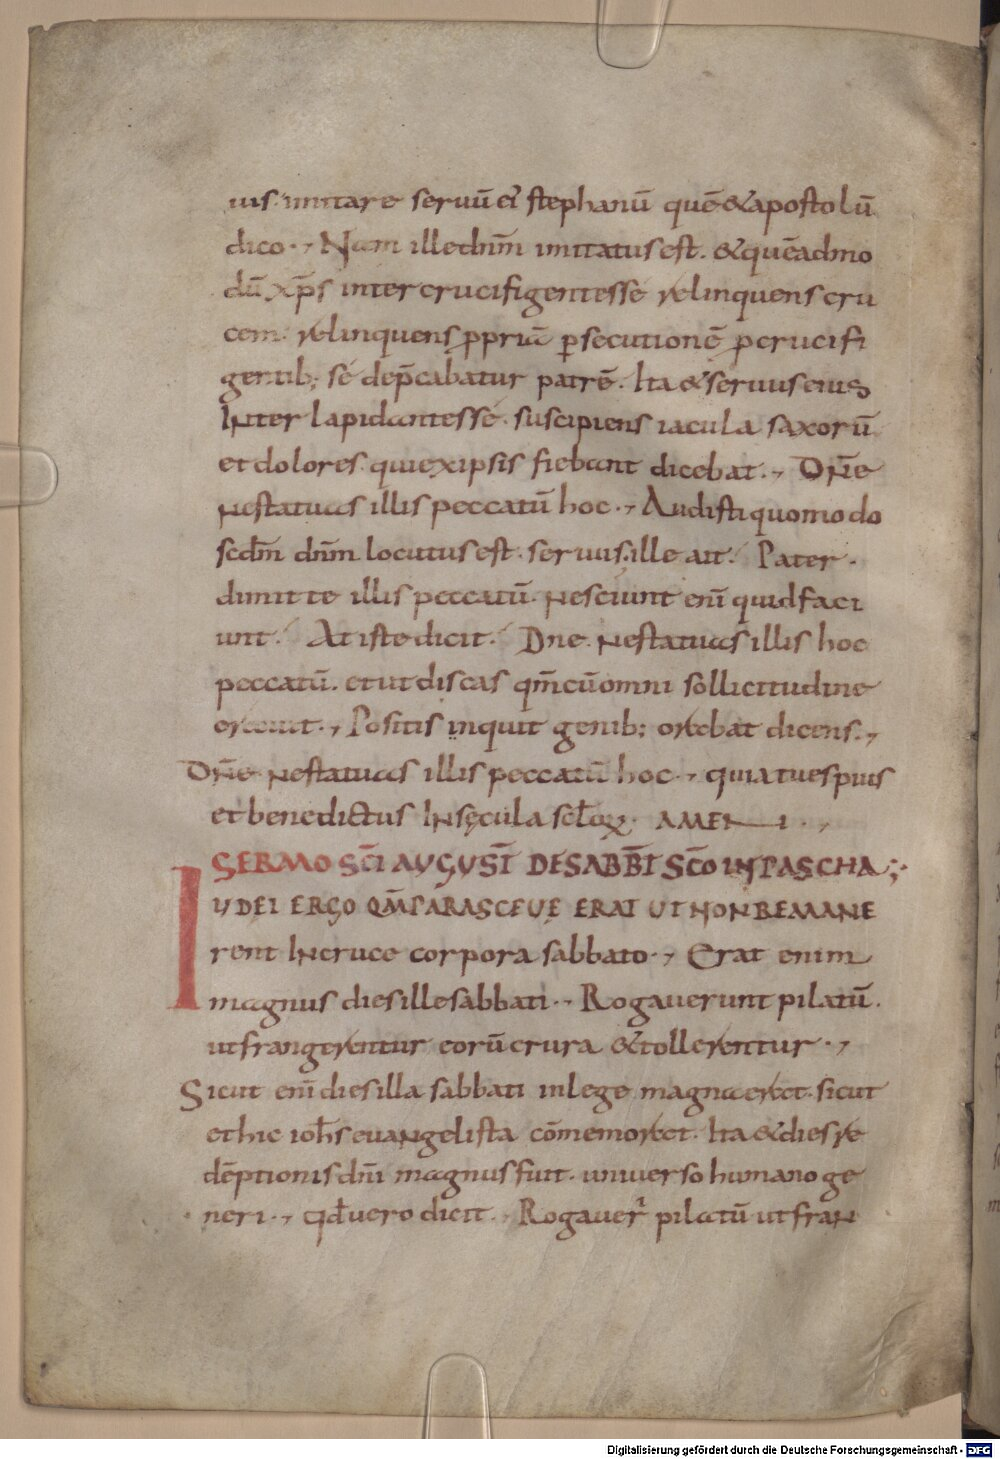 uis· imitare seruū ei stephanū quē & apostolū
dico·, Nam ille dnm̄ imitatus est. & quēadmo
dū xp̄s inter crucifigentes se relinquens cru
cem· relinquens ppriā psecutionē p crucifi
gentib; se dep̄cabatur patrē. Ita & seruus eius
Inter lapidantes se· suscipiens iacula saxorū
et dolores· qui ex ipsis fiebant dicebat·, DN̄e
Ne statuas illis peccatū hoc·, Audisti quomodo
scdm̄ dnm̄ locutus est· seruus. ille ait· Pater·
dimitte illis peccatū· Nesciunt enī quid faci
unt· At iste dicit· Dne· Ne statuas illis hoc
peccatū. et ut discas qm̄ cū omni sollicitudine
orauit·, Positis inquit genib; orabat dicens.,
DN̄e Ne statuas illis peccatū hoc·, quia tu es pius
et benedictus IN sęcula scl̄oꝝ· AMEN·,
SERMO SC̄I AUGUSTĪ DE SABBĪ SC̄O IN PASCHA
IUDEI ERGO QM̄ PARASCEUE ERAT UT NON REMANE
rent IN cruce corpora sabbato·, Erat enim
magnus dies ille sabbati·, Rogauerunt pilatū.
ut frangerentur eorū crura & tollerentur·,
Sicut enī dies illa sabbati in lege magna erat· sicut
et hic ioh̄s euangelista cōmemorat· Ita & dies re
dēptionis dnī magnus fuit· uniuerso humano ge
neri·, qd̄ uero dicit· Rogauer̄ pilatū ut fraN
Digitalisierung gefördert durch die Deutsche Forschungsgemeinschaft - DFG